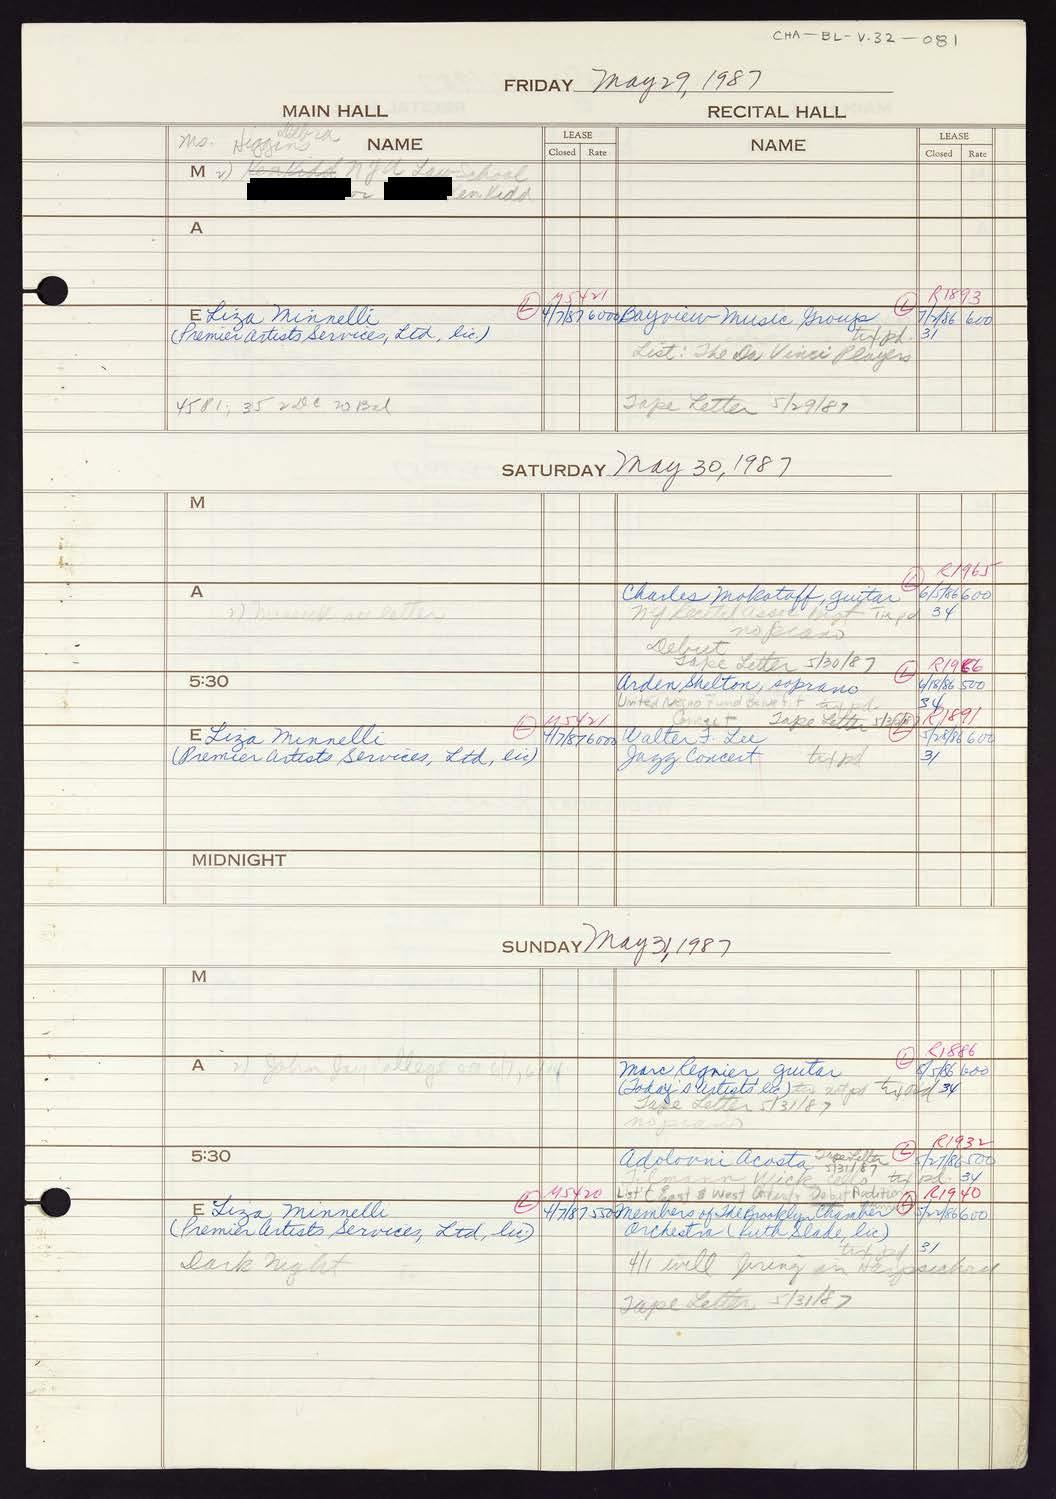 CHA-BL-V.32-081
FRIDAY May 29, 1987
MAIN HALL
RECITAL HALL
Ms. Debra Higgins
NAME
LEASE
Closed Rate
NAME
LEASE
Closed Rate
M 2) Ken Kidd NYU Law School
or Ken Kidd
A
M5421
R1893
E Liza Minnelli L 4/7/87 6000
(Premier Artists Services, Ltd., lic)
Bayview Music Groups L 7/2/86 600
tix pd. 31
List: The Da Vinci Players
4581; 35 2DC 20 Bal
Tape Letter 5/29/87
SATURDAY May 30, 1987
M
R1965
A
Charles Mokotoff, guitar L 6/5/86 600
NY Recital Assoc. Mgt Tix pd 34
no piano
Debut
Tape Letter 5/30/87
R1966
5:30
Arden Shelton, soprano L 6/18/86 500
United Negro Fund Benefit tix pd. 34
Concert Tape Letter 5/30/87
M5421
R1891
E Liza Minnelli L 4/7/87 6000
(Premier Artists Services, Ltd, lic)
Walter F. Lee L 5/28/86 600
Jazz Concert tix pd 31
MIDNIGHT
SUNDAY May 31, 1987
M
R1886
A 2) John Jay College
Marc Regnier guitar L 6/5/86 600
(Today's Artists lic) tix pd 34
Tape Letter 5/31/87
no piano
R1932
5:30
Adolovni Acosta Tape Letter 5/31/87 L 5/27/86 500
Tilmann Wick, cello tix pd. 34
List: East & West Artists Debut Audition
M5420
R1940
E Liza Minnelli L 4/7/87 5500
(Premier Artists Services, Ltd, lic)
Dark Night
Members of The Brooklyn Chamber L 5/22/86 600
Orchestra (Ruth Slade, lic)
tix pd 31
4/1 will bring in Harpsichord
Tape Letter 5/31/87